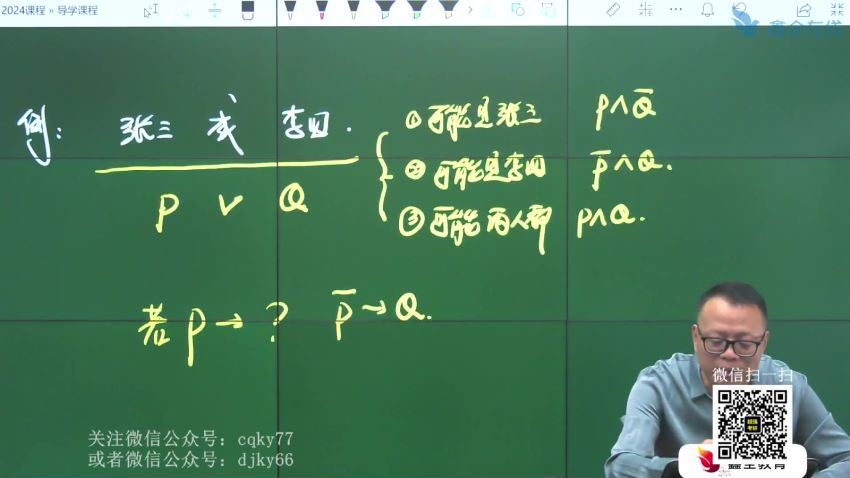 2024课程 » 导学课程
鑫全在线
例： 张三 或 李四.
P ∨ Q
① 可能是张三 P∧Q̅
② 可能是李四 P̅∧Q.
③ 可能两人都 P∧Q.
若 P → ? P̅ → Q.
微信扫一扫
关注微信公众号：cqky77
或者微信公众号：djky66
鑫全教育